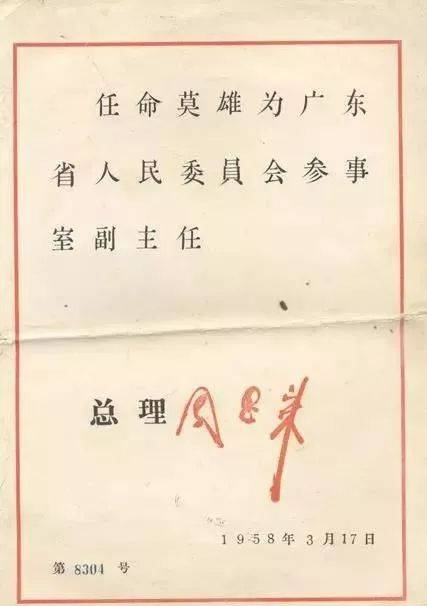 任命莫雄为广东
省人民委員会参事
室副主任
总理 周恩来
1958年3月17日
第 8304 号